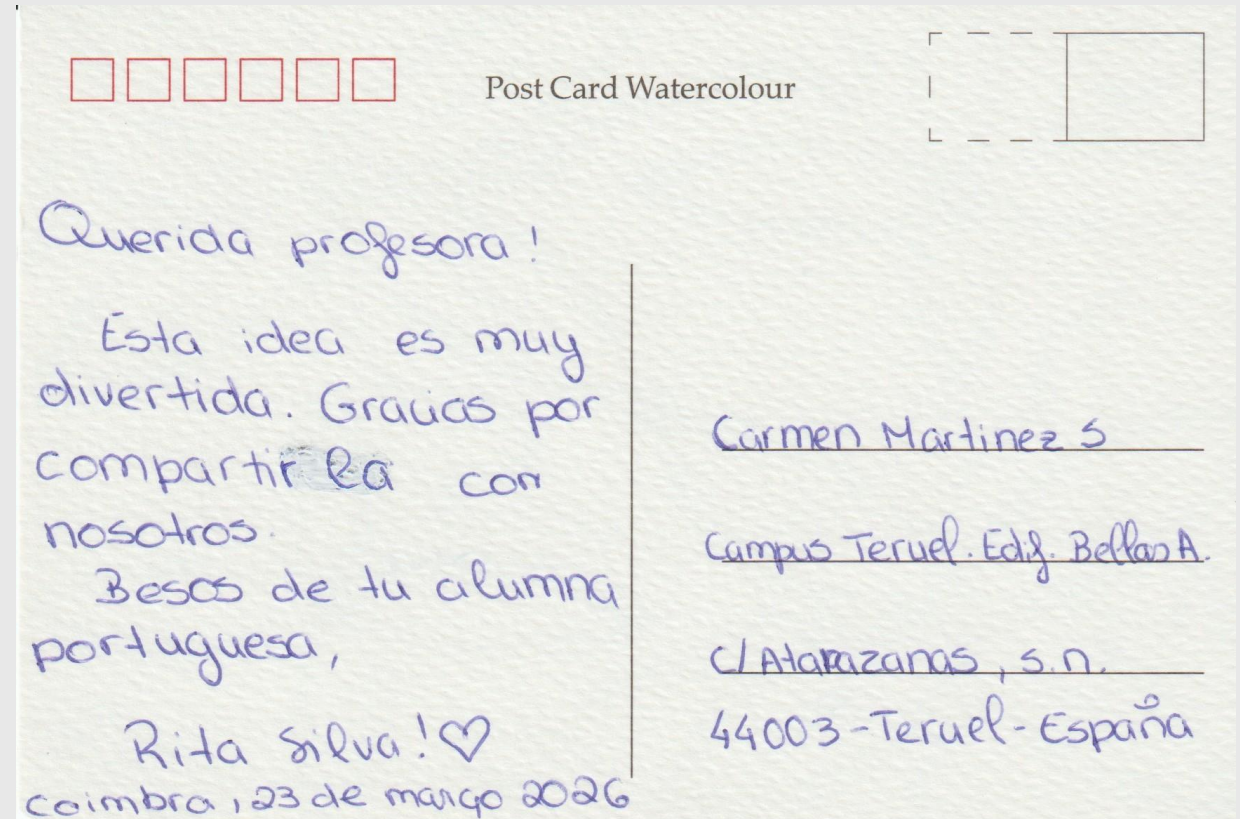 Post Card Watercolour
Querida profesora!
Esta idea es muy
divertida. Gracias por
compartir la con
nosotros.
Besos de tu alumna
portuguesa,
Rita Silva!♡
Coimbra, 23 de março 2026
Carmen Martinez S
Campus Teruel. Edif. Bellas A.
C/Atarazanas, s.n.
44003-Teruel-España